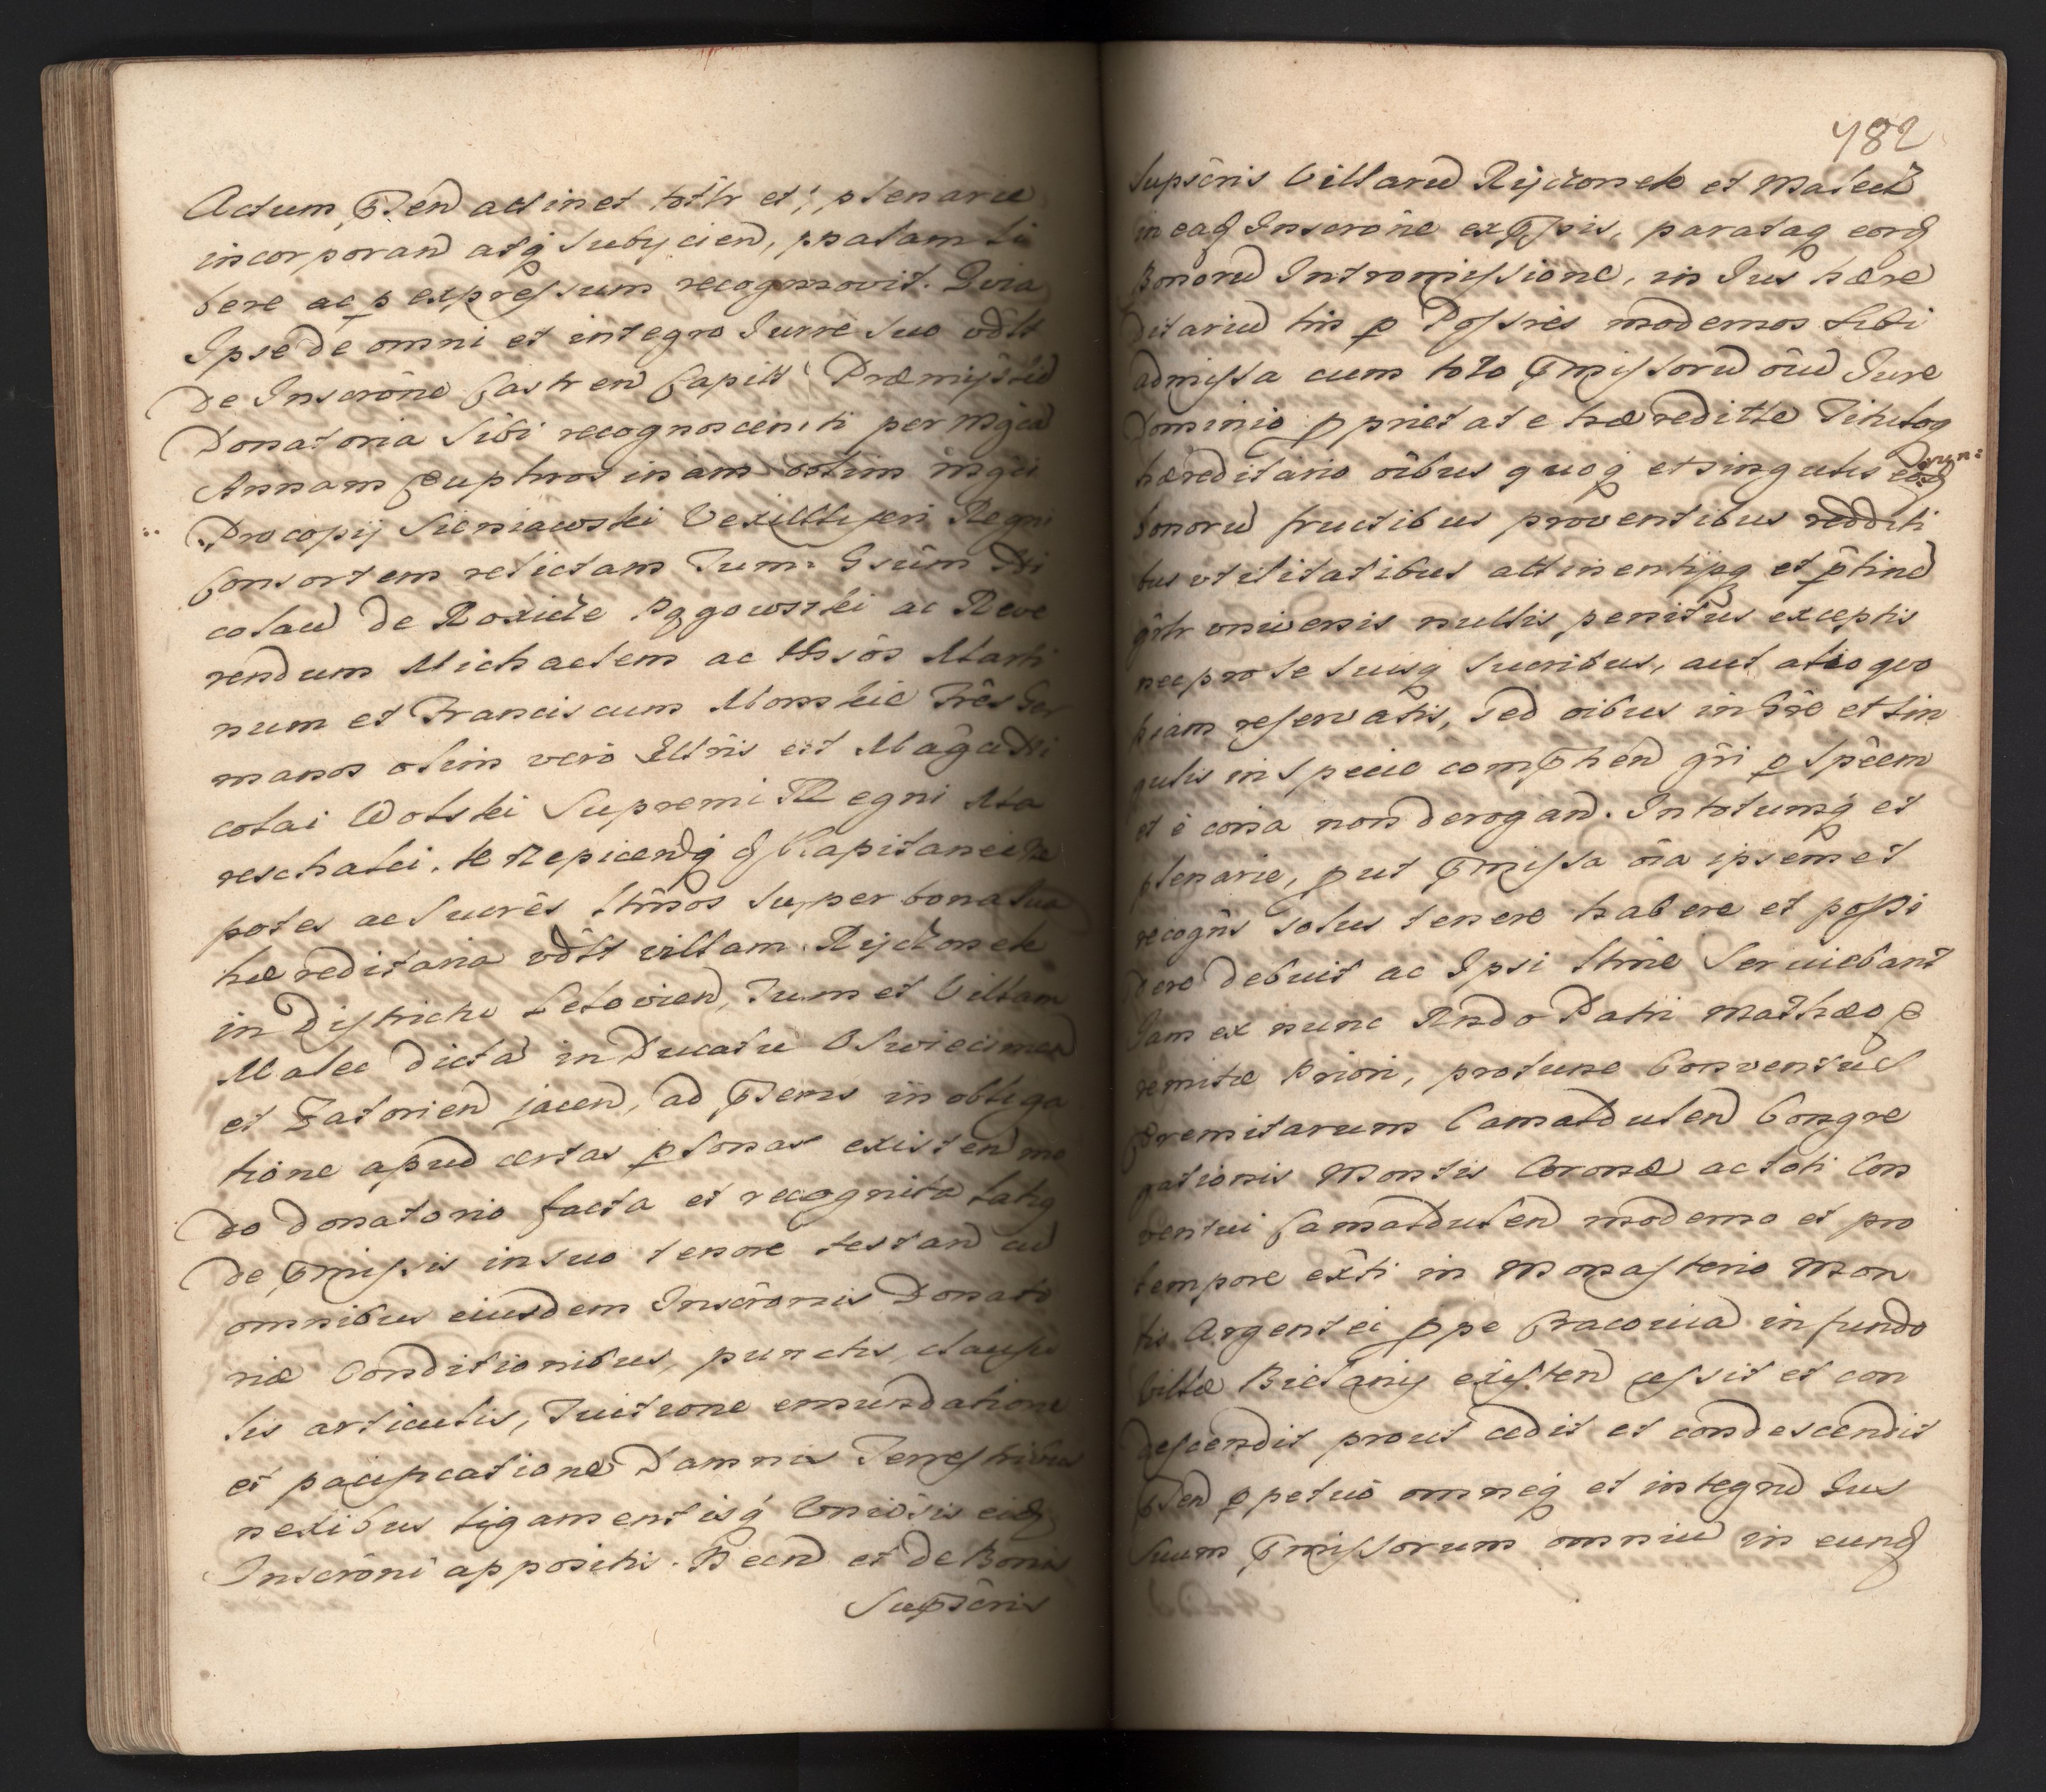 Actum p̄n̄ attinet tottr et plenarie
incorporan̄ atq̄ subycien̄, ppalam li
bere ac p expressum recognovit. Quia
Ipse de omni et integro Jure suo vdtt
de Inscrōne Castren̄ Capitt Præmisslien̄
Donatoria sibi recognoscenti per Mgcā
Annam Euphrosinam ōtim Mgci
Procopij Sieniawski Vexilliferi Regni
Consortem relictam Tum Gsūm Ni
colaū de Roxicze Pągowski ac Reve
rendum Michaelem ac Gsōs Marti
num et Franciscum Momskie Frēs Ger
manos olim vero Illris ect Magci Ni
colai Wolski Supremi Regni Ma
reschalci.
potes ac Sucrēs ltīmos super bona sua
hæreditaria vdtt villam Ryczonek
in Districtu Lelovien̄, Tum et Villam
Malec dictā in Ducatu Oswiecimen̄
et Zatorien̄ jacen̄, ad p̄sens in obliga
tione apud certas psonas existen̄ mo
do donatorio facta et recognita latiq̄
de p̄missis in suo tenore testan̄ cū
omnibus eiusdem Inscrōnis Donato
riæ Conditionibus, punctis, clausu
lis articulis, Tuitione emundatione
et pacificatione Damnis Terrestribus
nexibus ligamentisq̄ Vniōsis eid
Inscrōni appositis. Necn̄ et de Bonis
Sup̄scris
482
Supscris Villarū Ryczonek et Malecz
in eaq̄ Inscrōne exp̄ssis, parataq̄ eorq̄
Bonorū Intromissione, in Jus hære
ditariū tris p Possrēs modernos sibi
admissa cum toto p̄missorū ōiū Jure
Dominio pprietate hæreditte Tituloq̄
hæreditario ōibus quoq̄ et singulis eorq̄
bonorū fructibus proventibus redditi
bus vtilitatibus attinentijsq̄ et p̄tinen̄
grtr vniversis nullis penitus exceptis
nec pro se suisq̄ sucribus, aut alio quo
piam reservatis, sed ōibus in gr̄e et sin
gulis in specie comp̄hen̄ gri p spēem
et è coria non derogan̄. In totumq̄ et
plenarie, put p̄missa ōia ipsemet
recogns solus tenere habere et possi
dere debuit ac Ipsi ltīme serviebant
Jam ex nunc Rndo Patri Mathæo E
remitæ Priori, protunc Conventus
Eremitarum Camaldulen̄ Congre
gationis Montis Coronæ ac toti Con
ventui Camaldulen̄ moderno et pro
tempore exti in Monasterio Mon
tis Argentei ppe Cracoviā in fundo
Villæ Bielany existen̄ cessit et con
descendit prout cedit et condescendit
p̄n̄ ppetuo omneq̄ et integrū Jus
Suum p̄missorum omniū in eunq̄